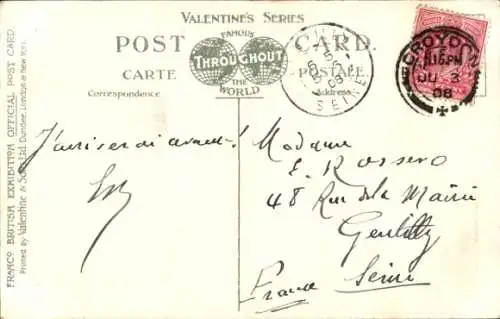 VALENTINE'S SERIES
FAMOUS
THROUGHOUT
THE
WORLD
POST CARD.
CARTE POSTALE.
Correspondence Address
FRANCO BRITISH EXHIBITION OFFICIAL POST CARD.
Printed by Valentine & Sons, Ltd. Dundee, London & New York.
SEINE
CROYDON
JU 3
08
J'aviserai avant!
Madame
E. Rossero
48 Rue de la Mairie
Gentilly
France Seine